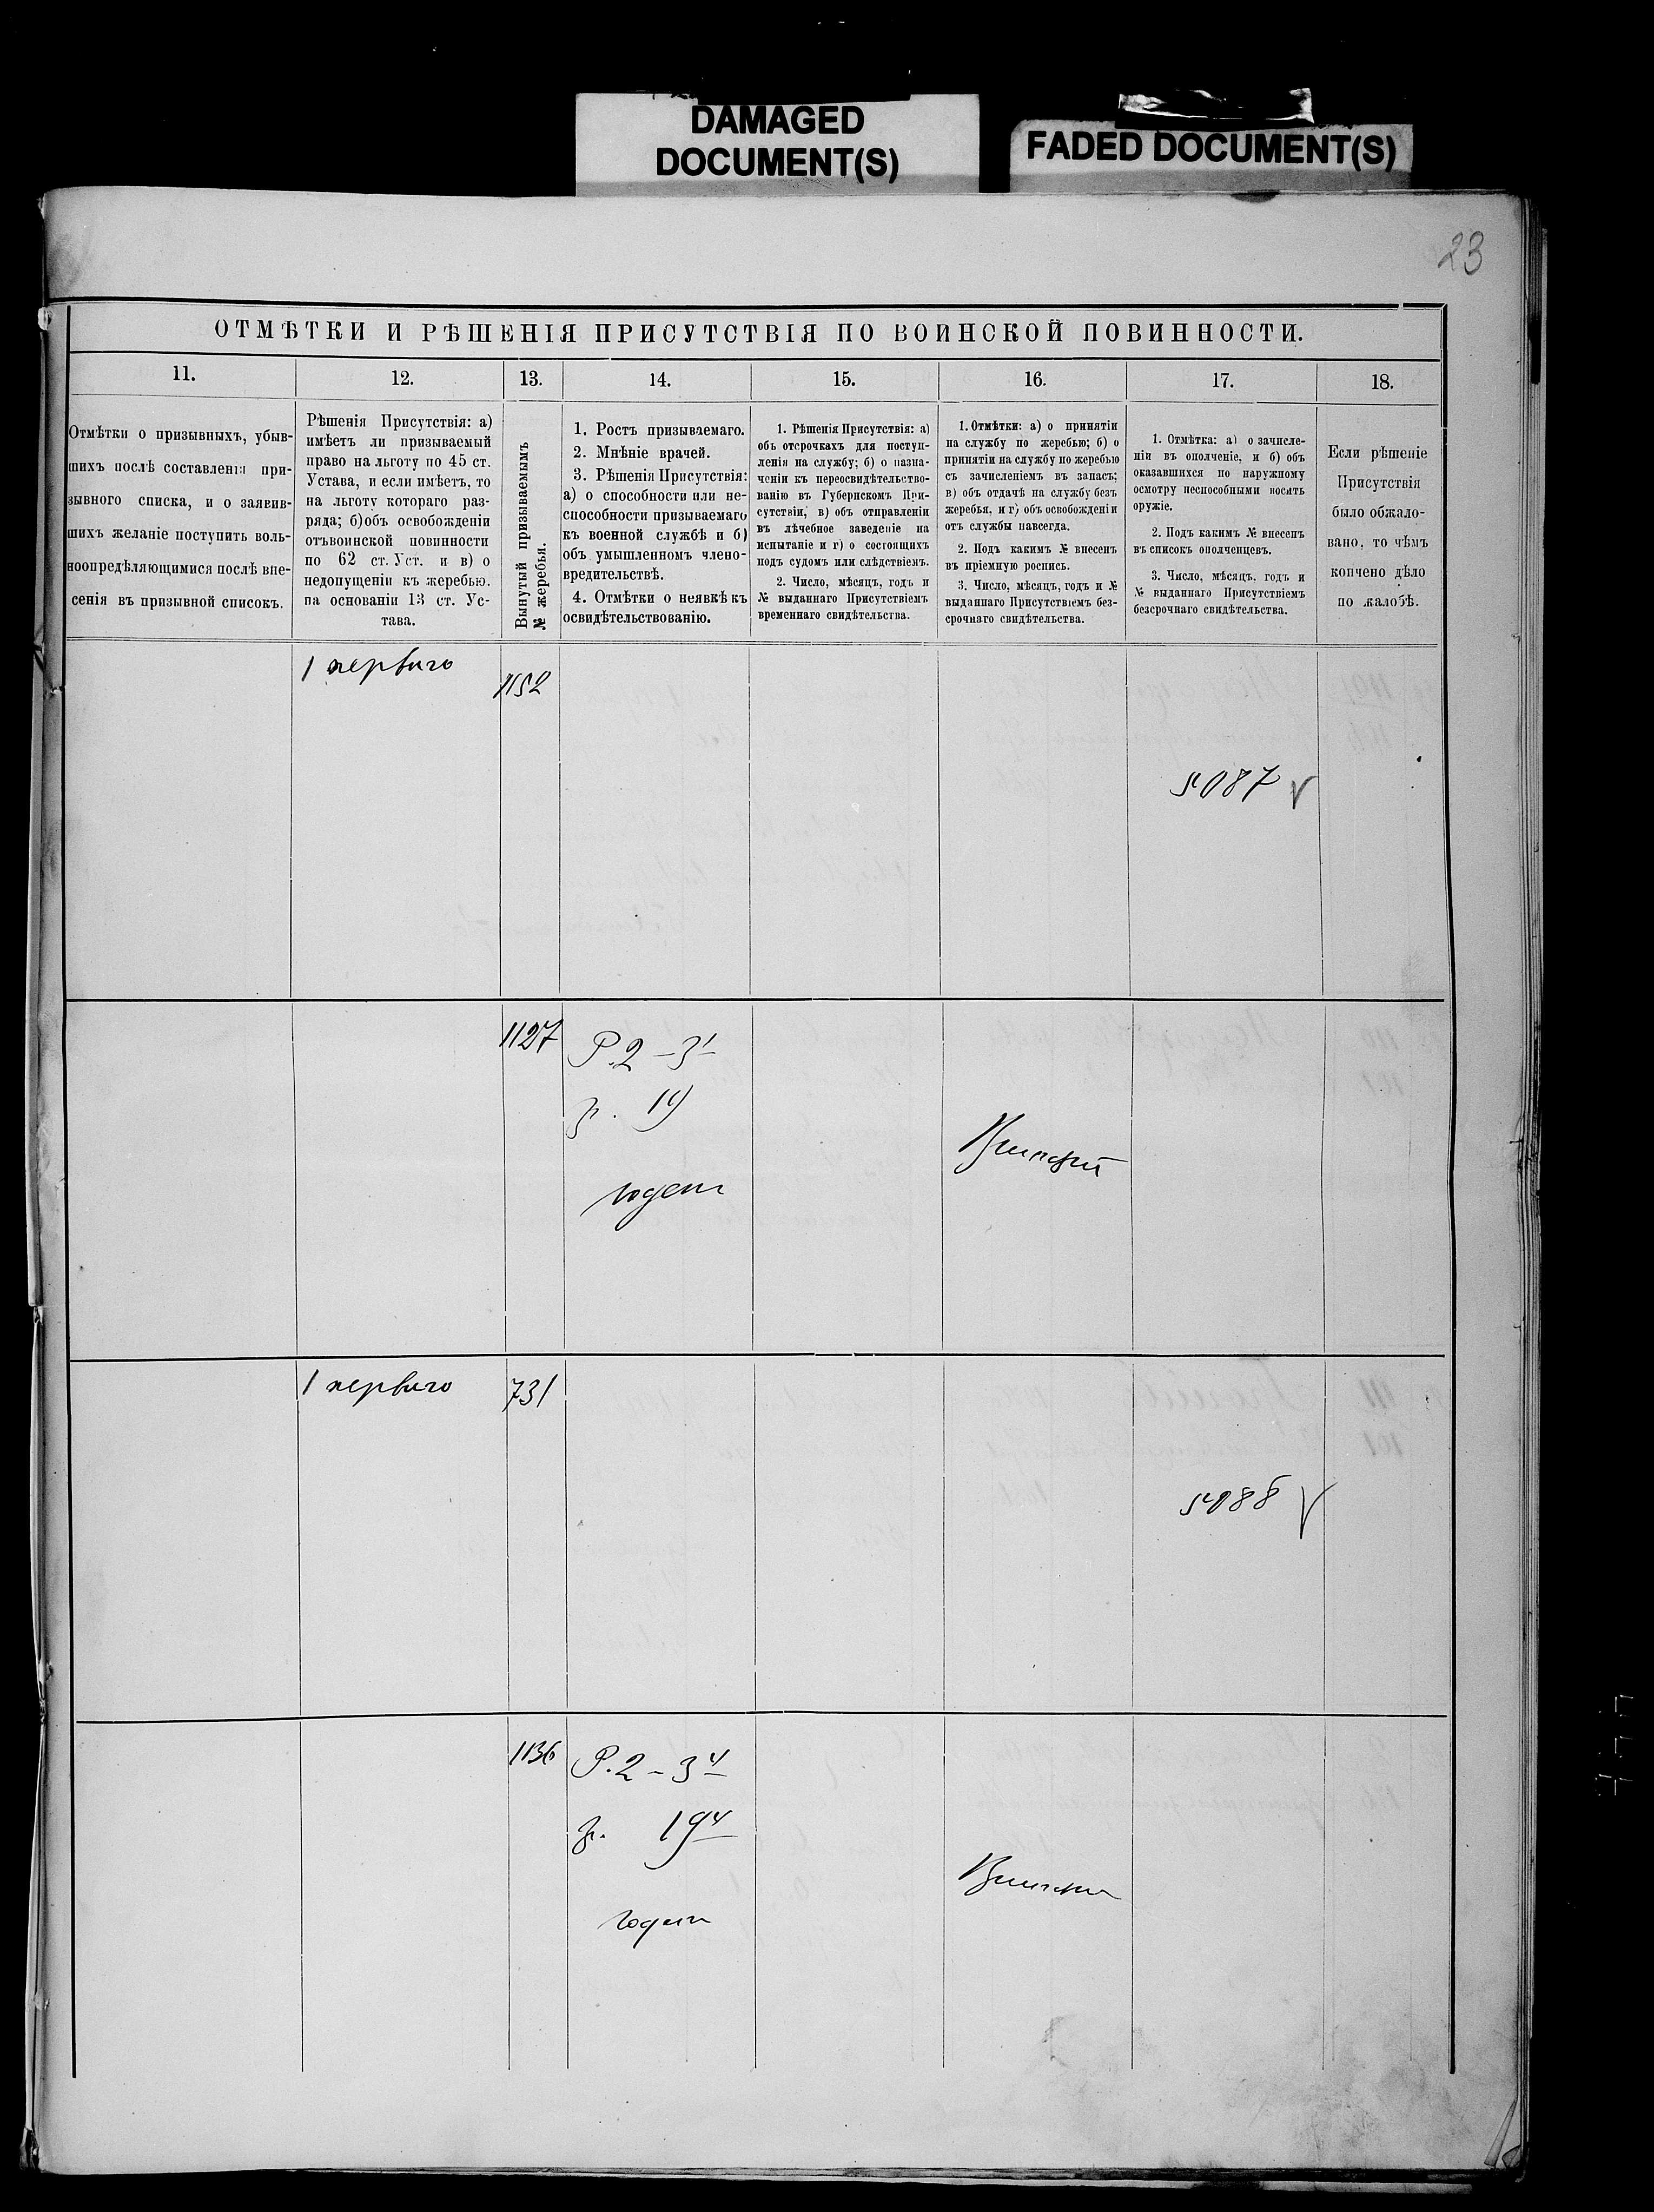 DAMAGED
DOCUMENT(S)
FADED DOCUMENT(S)
23
ОТМѢТКИ И РѢШЕНІЯ ПРИСУТСТВІЯ ПО ВОИНСКОЙ ПОВИННОСТИ.
11.
Отмѣтки о призывныхъ, убыв-
шихъ послѣ составленія при-
зывного списка, и о заявив-
шихъ желаніе поступить воль-
ноопредѣляющимися послѣ вне-
сенія въ призывной списокъ.
12.
Рѣшенія Присутствія: а)
имѣетъ ли призываемый
право на льготу по 45 ст.
Устава, и если имѣетъ, то
на льготу котораго раз-
ряда; б) объ освобожденіи
отъ воинской повинности
по 62 ст. Уст. и в) о
недопущеніи къ жеребью.
на основаніи 13 ст. Ус-
тава.
13.
Вынутый призываемымъ
№ жеребья.
14.
1. Ростъ призываемаго.
2. Мнѣніе врачей.
3. Рѣшенія Присутствія:
а) о способности или не-
способности призываемаго
къ военной службѣ и б)
объ умышленномъ члено-
вредительствѣ.
4. Отмѣтки о неявкѣ къ
освидѣтельствованію.
15.
1. Рѣшенія Присутствія: а)
объ отсрочкахъ для поступ-
ленія на службу; б) о назна-
ченіи къ переосвидѣтельство-
ванію въ Губернскомъ При-
сутствіи, в) объ отправленіи
въ лѣчебное заведеніе на
испытаніе и г) о состоящихъ
подъ судомъ или слѣдствіемъ.
2. Число, мѣсяцъ, годъ и
№ выданнаго Присутствіемъ
временнаго свидѣтельства.
16.
1. Отмѣтки: а) о принятіи
на службу по жеребью; б) о
принятіи на службу по жеребью
съ зачисленіемъ въ запасъ;
в) объ отдачѣ на службу безъ
жеребья, и г) объ освобожденіи
отъ службы навсегда.
2. Подъ какимъ № внесенъ
въ пріемную роспись.
3. Число, мѣсяцъ, годъ и №
выданнаго Присутствіемъ без-
срочнаго свидѣтельства.
17.
1. Отмѣтка: а) о зачисле-
ніи въ ополченіе, и б) объ
оказавшихся по наружному
осмотру неспособными носить
оружіе.
2. Подъ какимъ № внесенъ
въ списокъ ополченцевъ.
3. Число, мѣсяцъ, годъ и
№ выданнаго Присутствіемъ
безсрочнаго свидѣтельства.
18.
Если рѣшеніе
Присутствія
было обжало-
вано, то чѣмъ
кончено дѣло
по жалобѣ.
1 перваго
1152
1127
Р. 2 – 3
годенъ
1 перваго
731
1136
Р. 2 – 3 4
г. 19 4
годенъ